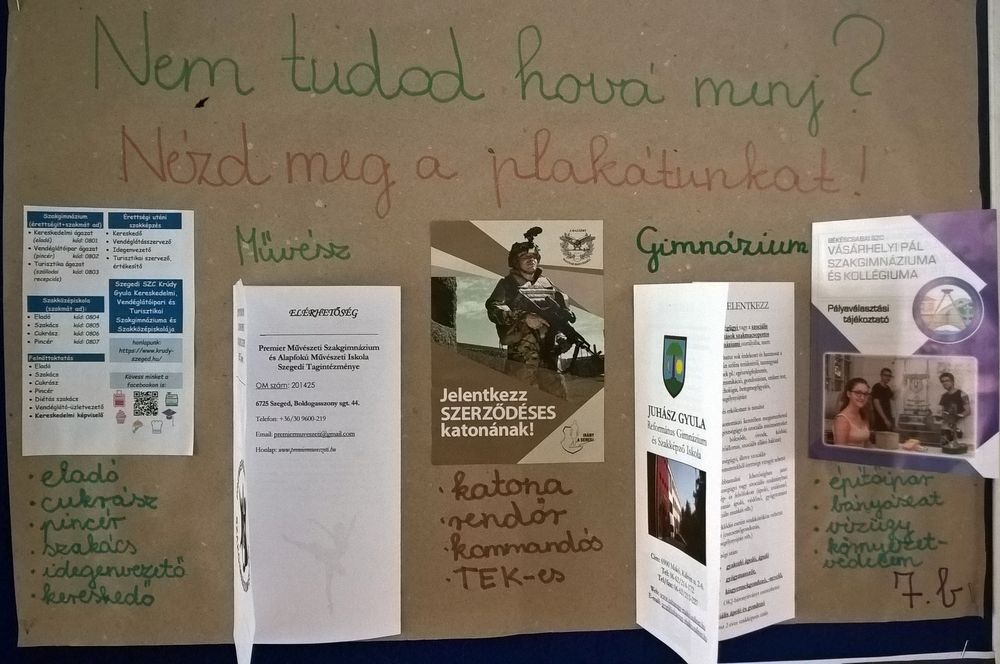 Nem tudod hová menj?
Nézd meg a plakátunkat!
Szakgimnázium
(érettségit+szakmát ad)
Kereskedelmi ágazat
(eladó) kód: 0801
Vendéglátóipari ágazat
(pincér) kód: 0802
Turisztika ágazat
(szállodai kód: 0803
recepciós)
Érettségi utáni
szakképzés
Kereskedő
Vendéglátásszervező
Idegenvezető
Turisztikai szervező,
értékesítő
Szakközépiskola
(szakmát ad):
Eladó kód: 0804
Szakács kód: 0805
Cukrász kód: 0806
Pincér kód: 0807
Szegedi SZC Krúdy
Gyula Kereskedelmi,
Vendéglátóipari és
Turisztikai
Szakgimnáziuma és
Szakközépiskolája
Felnőttoktatás
Eladó
Szakács
Cukrász
Pincér
Diétás szakács
Vendéglátó-üzletvezető
Kereskedelmi képviselő
honlapunk:
https://www.krudy-
szeged.hu/
Kövess minket a
facebookon is:
· eladó
· cukrász
· pincér
· szakács
· idegenvezető
· kereskedő
Művész
ELÉRHETŐSÉG
Premier Művészeti Szakgimnázium
és Alapfokú Művészeti Iskola
Szegedi Tagintézménye
OM szám: 201425
6725 Szeged, Boldogasszony sgt. 44.
Telefon: +36/30 9600-219
Email: premiermuveszeti@gmail.com
Honlap: www.premiermuveszeti.hu
Jelentkezz
SZERZŐDÉSES
katonának!
IRÁNY
A SEREG!
· katona
· rendőr
· kommandós
· TEK-es
Gimnázium
JUHÁSZ GYULA
Református Gimnázium
és Szakképző Iskola
JELENTKEZZ
BÉKÉSCSABAI SZC
VÁSÁRHELYI PÁL
SZAKGIMNÁZIUMA
ÉS KOLLÉGIUMA
Pályaválasztási
tájékoztató
· építőipar
· bányászat
· vízügy
· környezet-
védelem
7. b